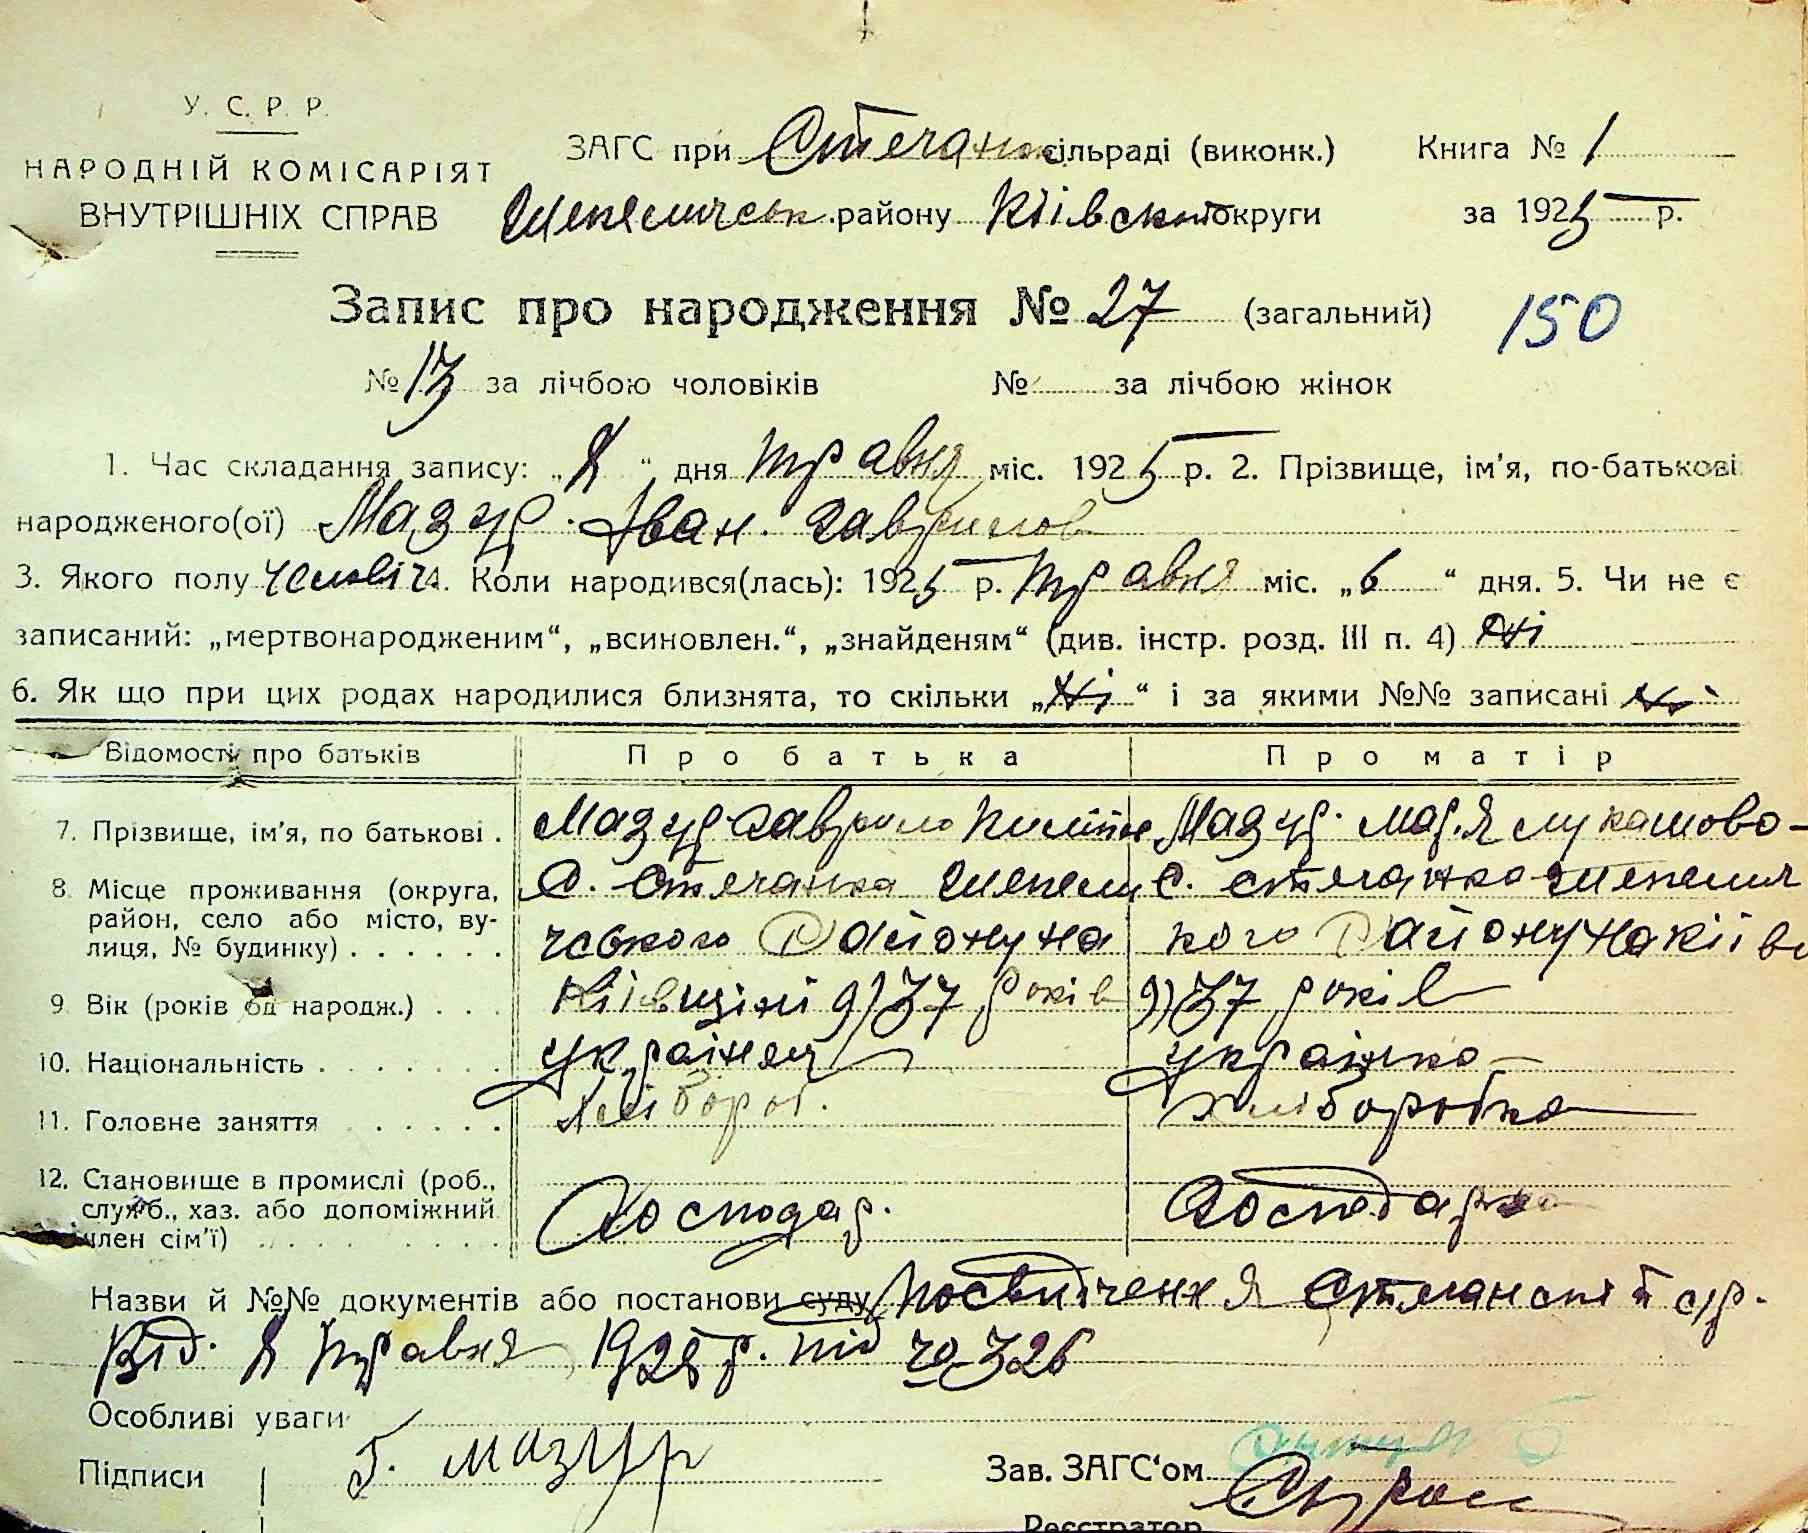 У. С. Р. Р.
НАРОДНІЙ КОМІСАРІЯТ
ВНУТРІШНІХ СПРАВ
ЗАГС при Стечанк. сільраді (виконк.) Книга № 1
Шепеличськ. району Київської округи за 1925 р.
Запис про народження № 27 (загальний) 150
№ 13 за лічбою чоловіків № за лічбою жінок
1. Час складання запису: „8“ дня травня міс. 1925 р. 2. Прізвище, ім'я, по-батькові
народженого(ої) Мазур. Іван. Гаврилов
3. Якого полу чоловіч. 4. Коли народився(лась): 1925 р. травня міс. „6“ дня. 5. Чи не є
записаний: „мертвонародженим“, „всиновлен.“, „знайденям“ (див. інстр. розд. III п. 4) Ні
6. Як що при цих родах народилися близнята, то скільки „Ні“ і за якими №№ записані Ні
Відомості про батьків Про батька Про матір
7. Прізвище, ім'я, по батькові . Мазур Гаврило Мазур. Мар.я Лукашова-
8. Місце проживання (округа, район, село або місто, вулиця, № будинку) . . . . . .
С. Стечанка Шепели С. Стечанка Шепелич
чського Району на кого Району на Київ
Київщині 9) 37 років 9) 37 років
9 Вік (років од народж.) . . .
10. Національність . . . . . . . українец українка
11. Головне заняття . . . . . . Хлібороб. Хліборобка
12. Становище в промислі (роб., служб., хаз. або допоміжний член сім'ї) . . . . . . . . Господар. Господарка
Назви й №№ документів або постанови суду Посвидчення Стечанської с/р.
Від. 8 Травня 1925 р. під чо 326
Особливі уваги
Підписи Г. Мазур Зав. ЗАГС'ом
Реєстратор